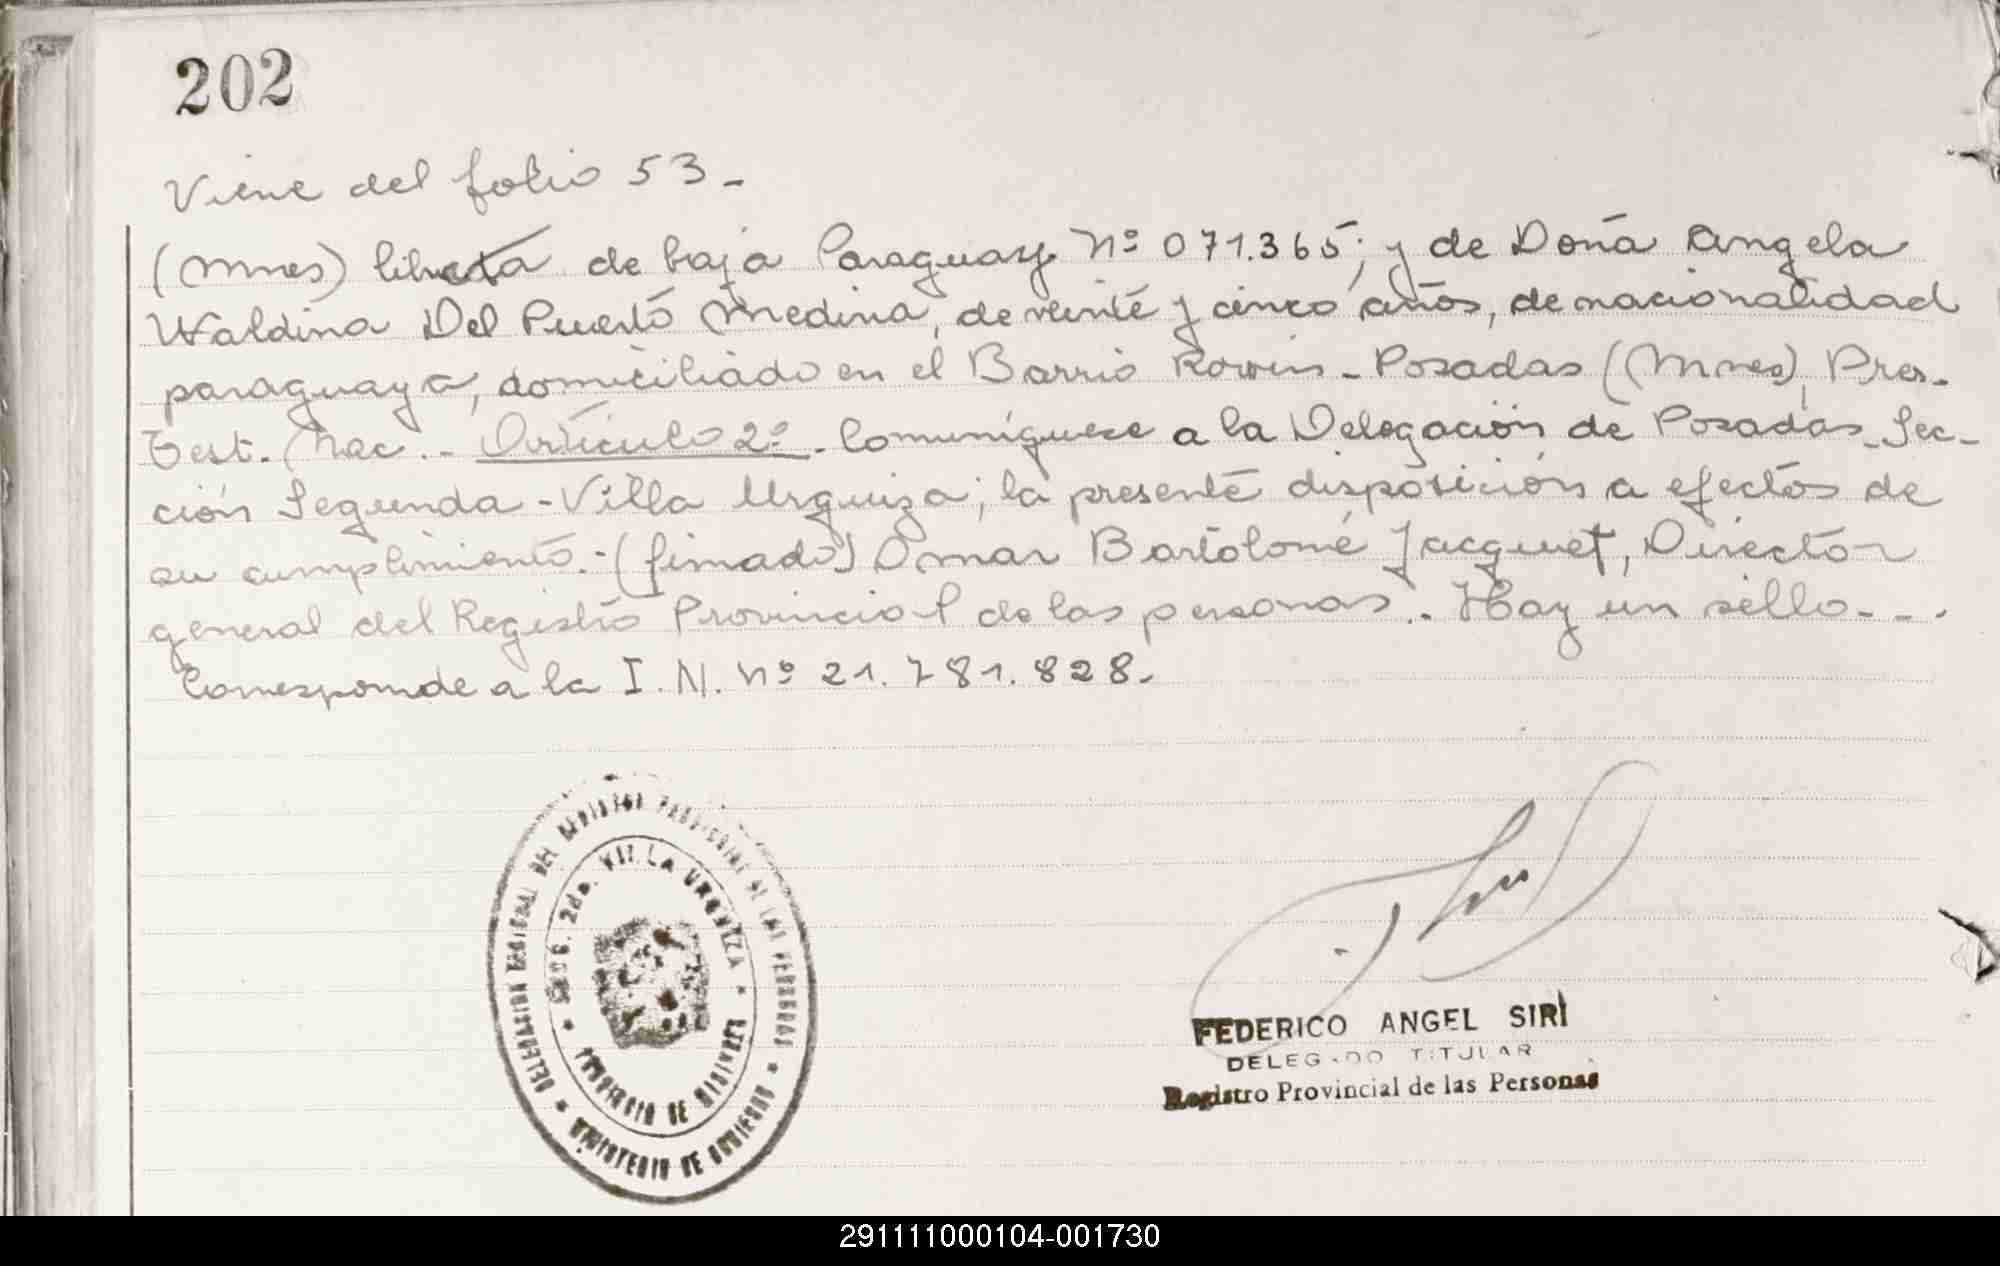 202
Viene del folio 53-
(Mnes) libreta de baja Paraguay Nº 071.365; y de Doña Angela
Waldina Del Puerto Medina, de veinte y cinco años, de nacionalidad
paraguaya, domiciliado en el Barrio Rowin - Posadas (Mnes), Pres.
Test. Nac. - Artículo 2º - Comuníquese a la Delegación de Posadas - Sec-
ción Segunda - Villa Urquiza; la presente disposición a efectos de
su cumplimiento. - (fimado) Omar Bartolomé Jacquet, Director
general del Registro Provincial de las personas. - Hay un sello - - .
Corresponde a la I. N. Nº 21.781.828.-
DELEGACION REGIONAL DEL REGISTRO PROVINCIAL DE LAS PERSONAS
SECC. 2da. VILLA URQUIZA
PROVINCIA DE MISIONES
MINISTERIO DE GOBIERNO
FEDERICO ANGEL SIRI
DELEGADO TITULAR
Registro Provincial de las Personas
291111000104-001730